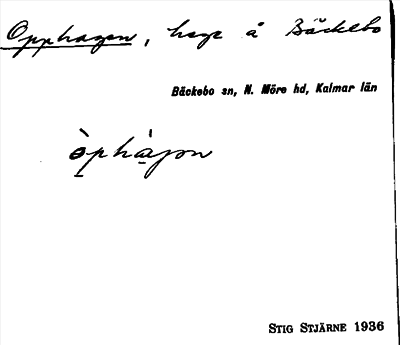 Opphagen, hage å Bäckebo
Bäckebo sn, N. Möre hd, Kalmar län
òphàgən
STIG STJÄRNE 1936